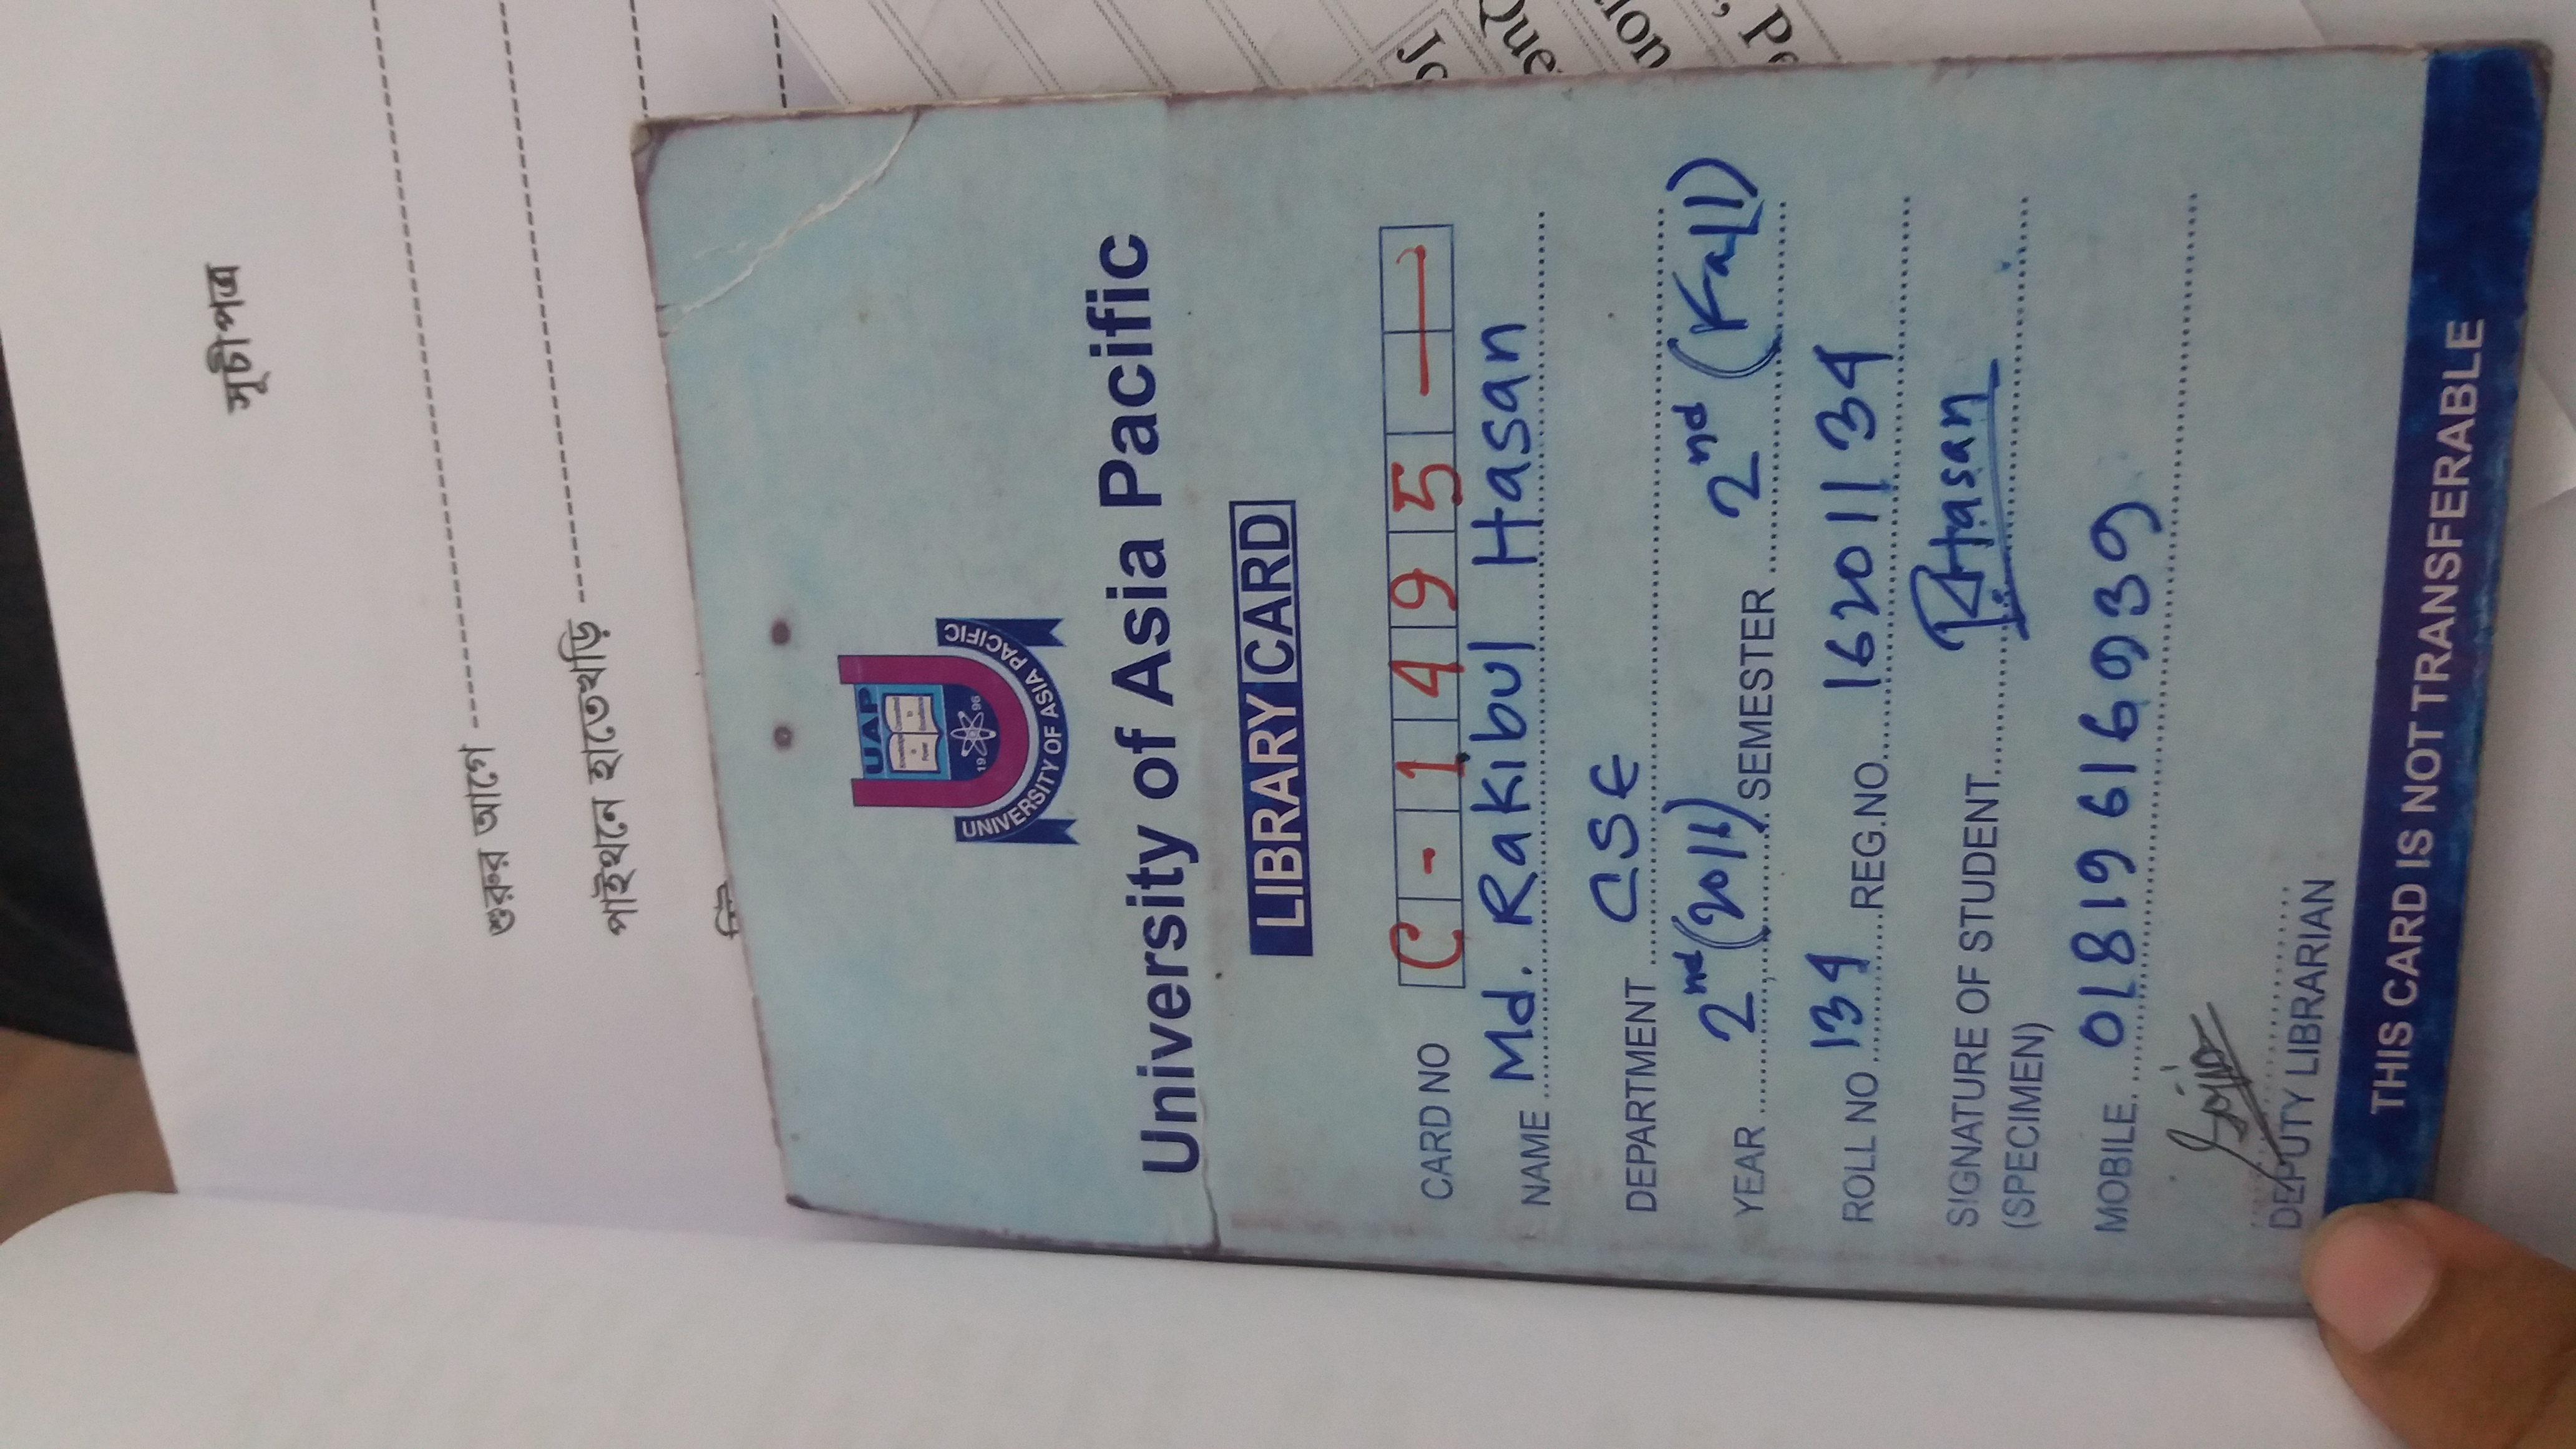 সূচীপত্র
শুরুর আগে
পাইথনে হাতেখড়ি
UAP
Knowledge is Power
Committed to Excellence
1996
UNIVERSITY OF ASIA PACIFIC
University of Asia Pacific
LIBRARY CARD
CARD NO C - 1495 —
NAME Md. Rakibul Hasan
DEPARTMENT CSE
YEAR 2nd (2016) SEMESTER 2nd (Fall)
ROLL NO 134 REG.NO. 16201134
SIGNATURE OF STUDENT RHasan
(SPECIMEN)
MOBILE. 01819616939
DEPUTY LIBRARIAN
THIS CARD IS NOT TRANSFERABLE